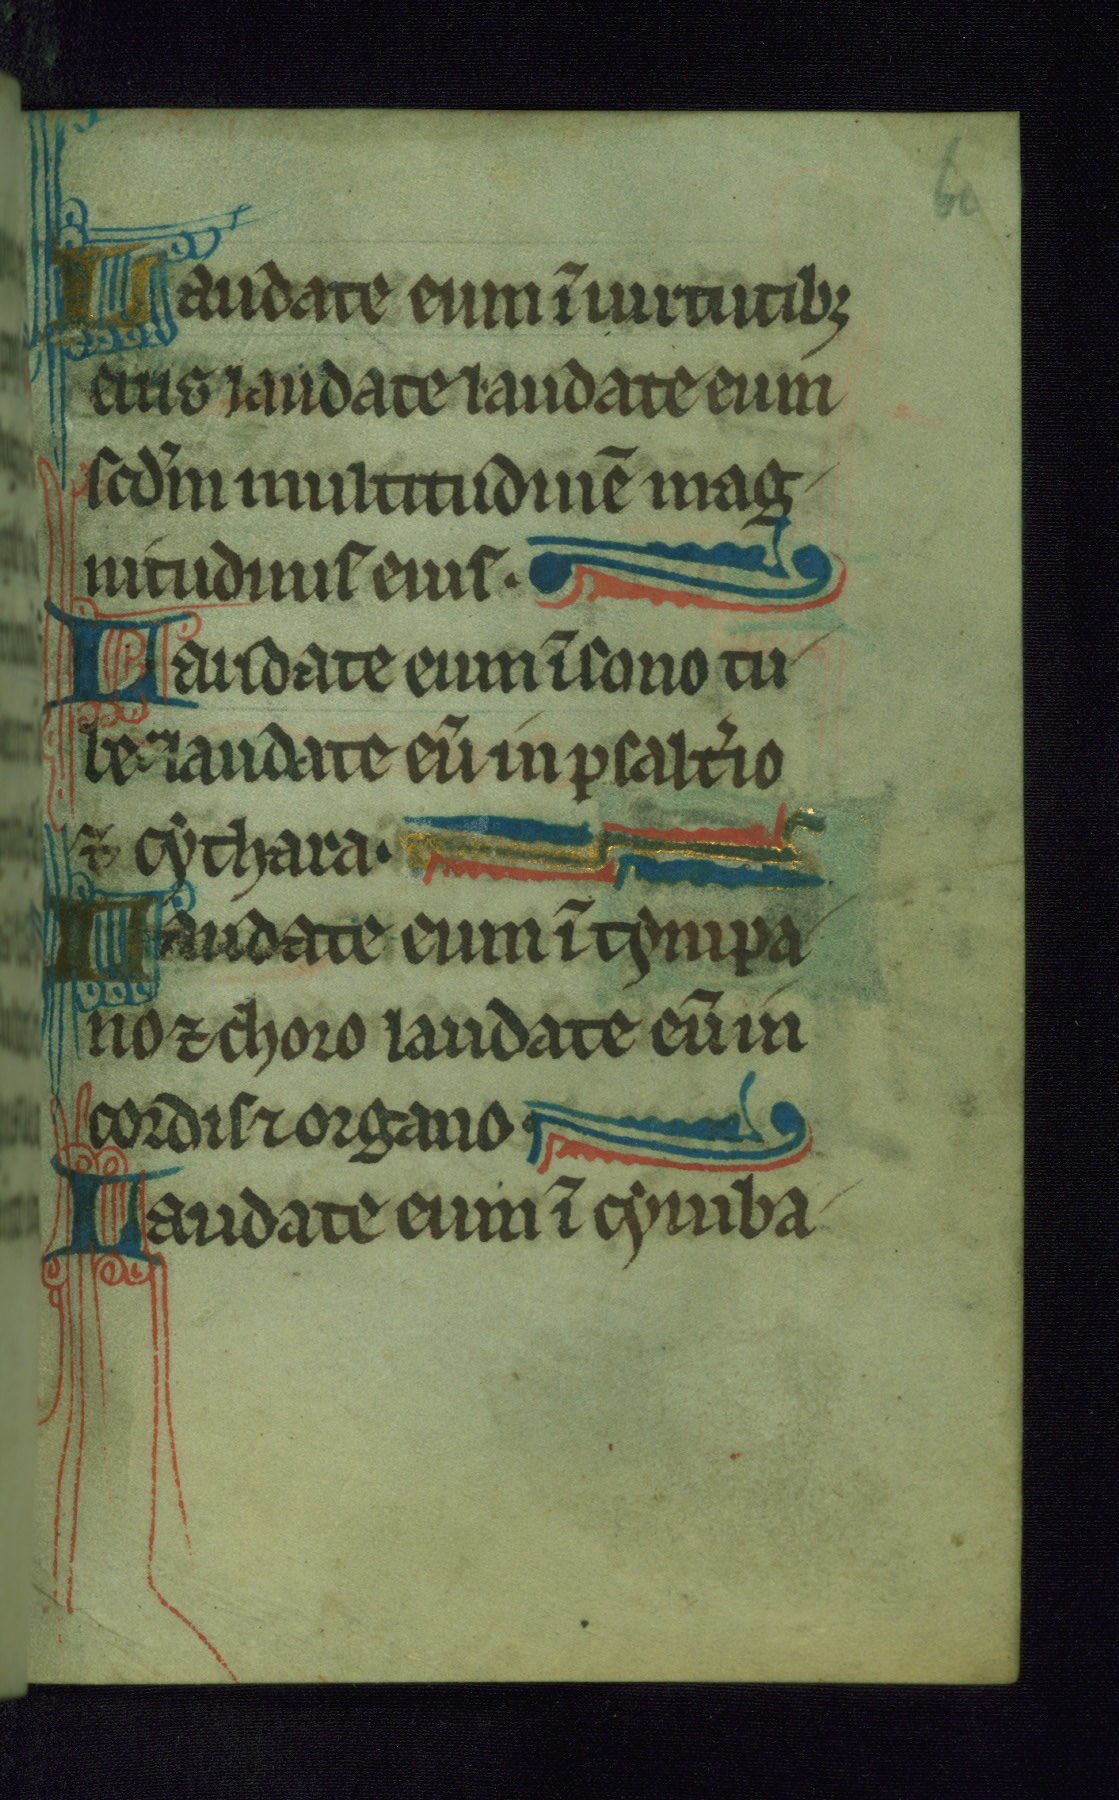 60
Laudate eum ĩ uirtutibꝫ
eius laudate laudate eum
scďm multitudinẽ mag
nitudinis eius.
Laudate eum ĩ sono tu
be laudate eũ in psalťio
⁊ cẏthara.
Laudate eum ĩ tẏmpa
no ⁊ choro laudate eũ in
cordis ⁊ organo
Laudate eum ĩ cẏmba